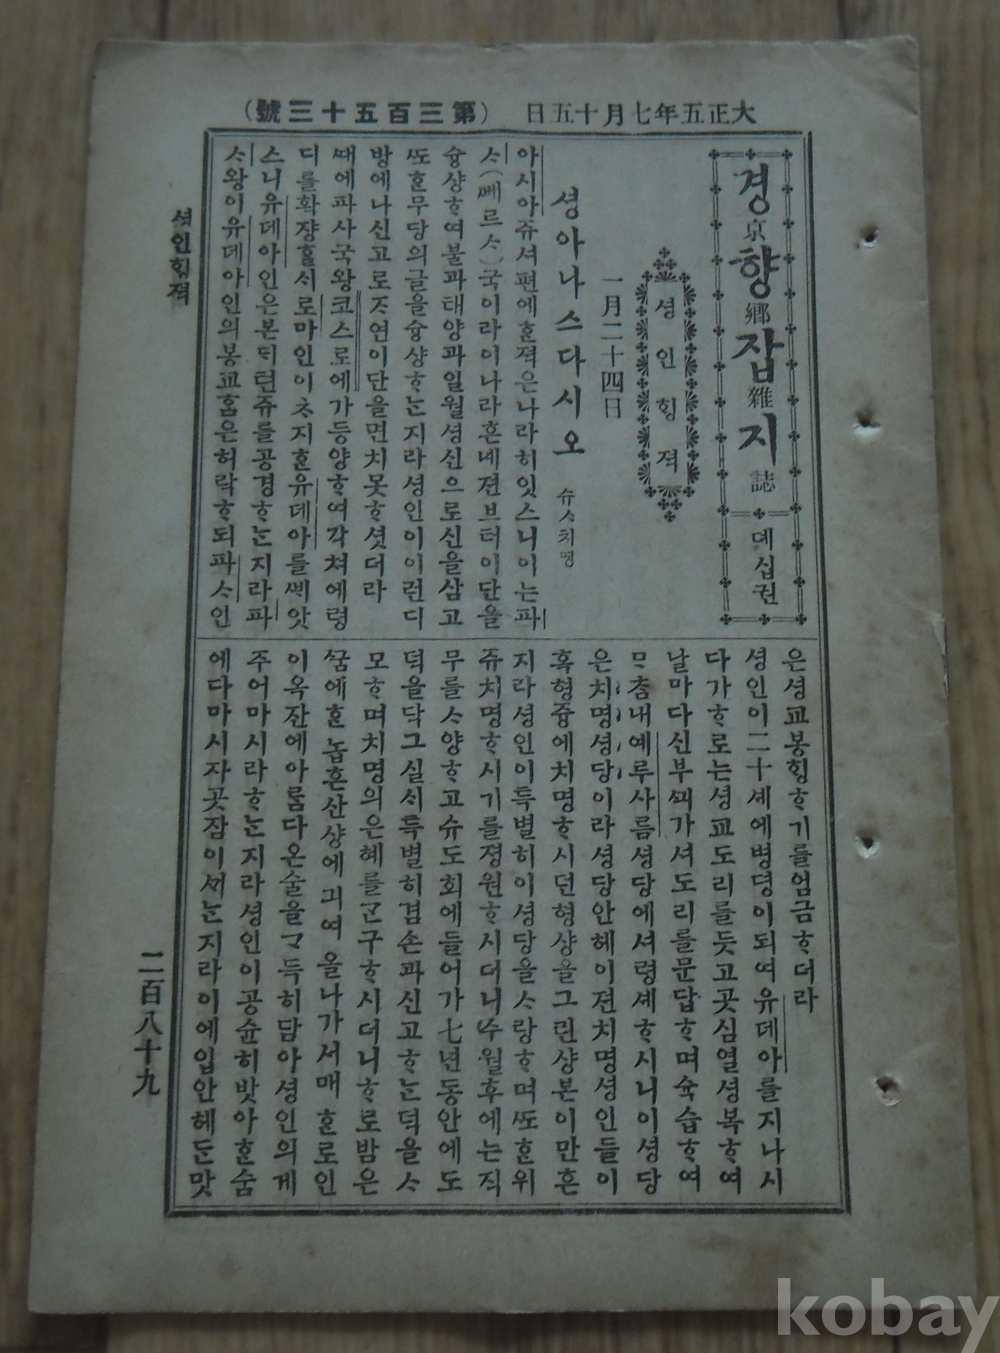 大正五年七月十五日 (第三百五十三號)
경京향鄕잡雜지誌 뎨십권
셩인ᄒᆡᆼ젹
一月二十四日
셩아나스다시오 슈ᄉᆞ치명
아시아쥬셔편에ᄒᆞᆫ젹은나라히잇스니이는파
ᄉᆞ(ᄲᅦ르ᄉᆞ)국이라이나라흔녜젼브터이단을
슝샹ᄒᆞ여불과태양과일월셩신으로신을삼고
ᄯᅩᄒᆞᆫ무당의글을슝샹ᄒᆞᄂᆞᆫ지라셩인이이런디
방에나신고로ᄌᆞ연이단을면치못ᄒᆞ셧더라
ᄯᅢ에파사국왕코스로에가등양ᄒᆞ여각쳐에령
디를확쟝ᄒᆞᆯᄉᆡ로마인이ᄎᆞ지ᄒᆞᆫ유데아를ᄲᅢ앗
스니유데아인은본ᄃᆡ텬쥬를공경ᄒᆞᄂᆞᆫ지라파
ᄉᆞ왕이유데아인의봉교홈은허락ᄒᆞ되파ᄉᆞ인
은셩교봉ᄒᆡᆼᄒᆞ기를엄금ᄒᆞ더라
셩인이二十셰에병뎡이되여유데아를지나시
다가ᄒᆞ로는셩교도리를듯고곳심열셩복ᄒᆞ여
날마다신부ᄭᅴ가셔도리를문답ᄒᆞ며슉습ᄒᆞ여
ᄆᆞᄎᆞᆷ내예루사름셩당에셔령셰ᄒᆞ시니이셩당
은치명셩당이라셩당안헤이젼치명셩인들이
혹형즁에치명ᄒᆞ시던형샹을그린샹본이만흔
지라셩인이특별히이셩당을ᄉᆞ랑ᄒᆞ며ᄯᅩᄒᆞᆫ위
쥬치명ᄒᆞ시기를졍원ᄒᆞ시더니수월후에는직
무를ᄉᆞ양ᄒᆞ고슈도회에들어가七년동안에도
덕을닥그실ᄉᆡ특별히겸손파신고ᄒᆞᄂᆞᆫ덕을ᄉᆞ
모ᄒᆞ며치명의은혜를ᄀᆞᆫ구ᄒᆞ시더니ᄒᆞ로밤은
ᄭᅮᆷ에ᄒᆞᆫ놉흔산샹에긔여올나가셔매ᄒᆞᆫ로인
이옥잔에아름다온술을ᄀᆞ득히담아셩인의게
주어마시라ᄒᆞᄂᆞᆫ지라셩인이공슌히밧아ᄒᆞᆫ숨
에다마시자곳잠이ᄭᆡᄂᆞᆫ지라이에입안헤둔맛
셩인ᄒᆡᆼ젹
二百八十九
kobay